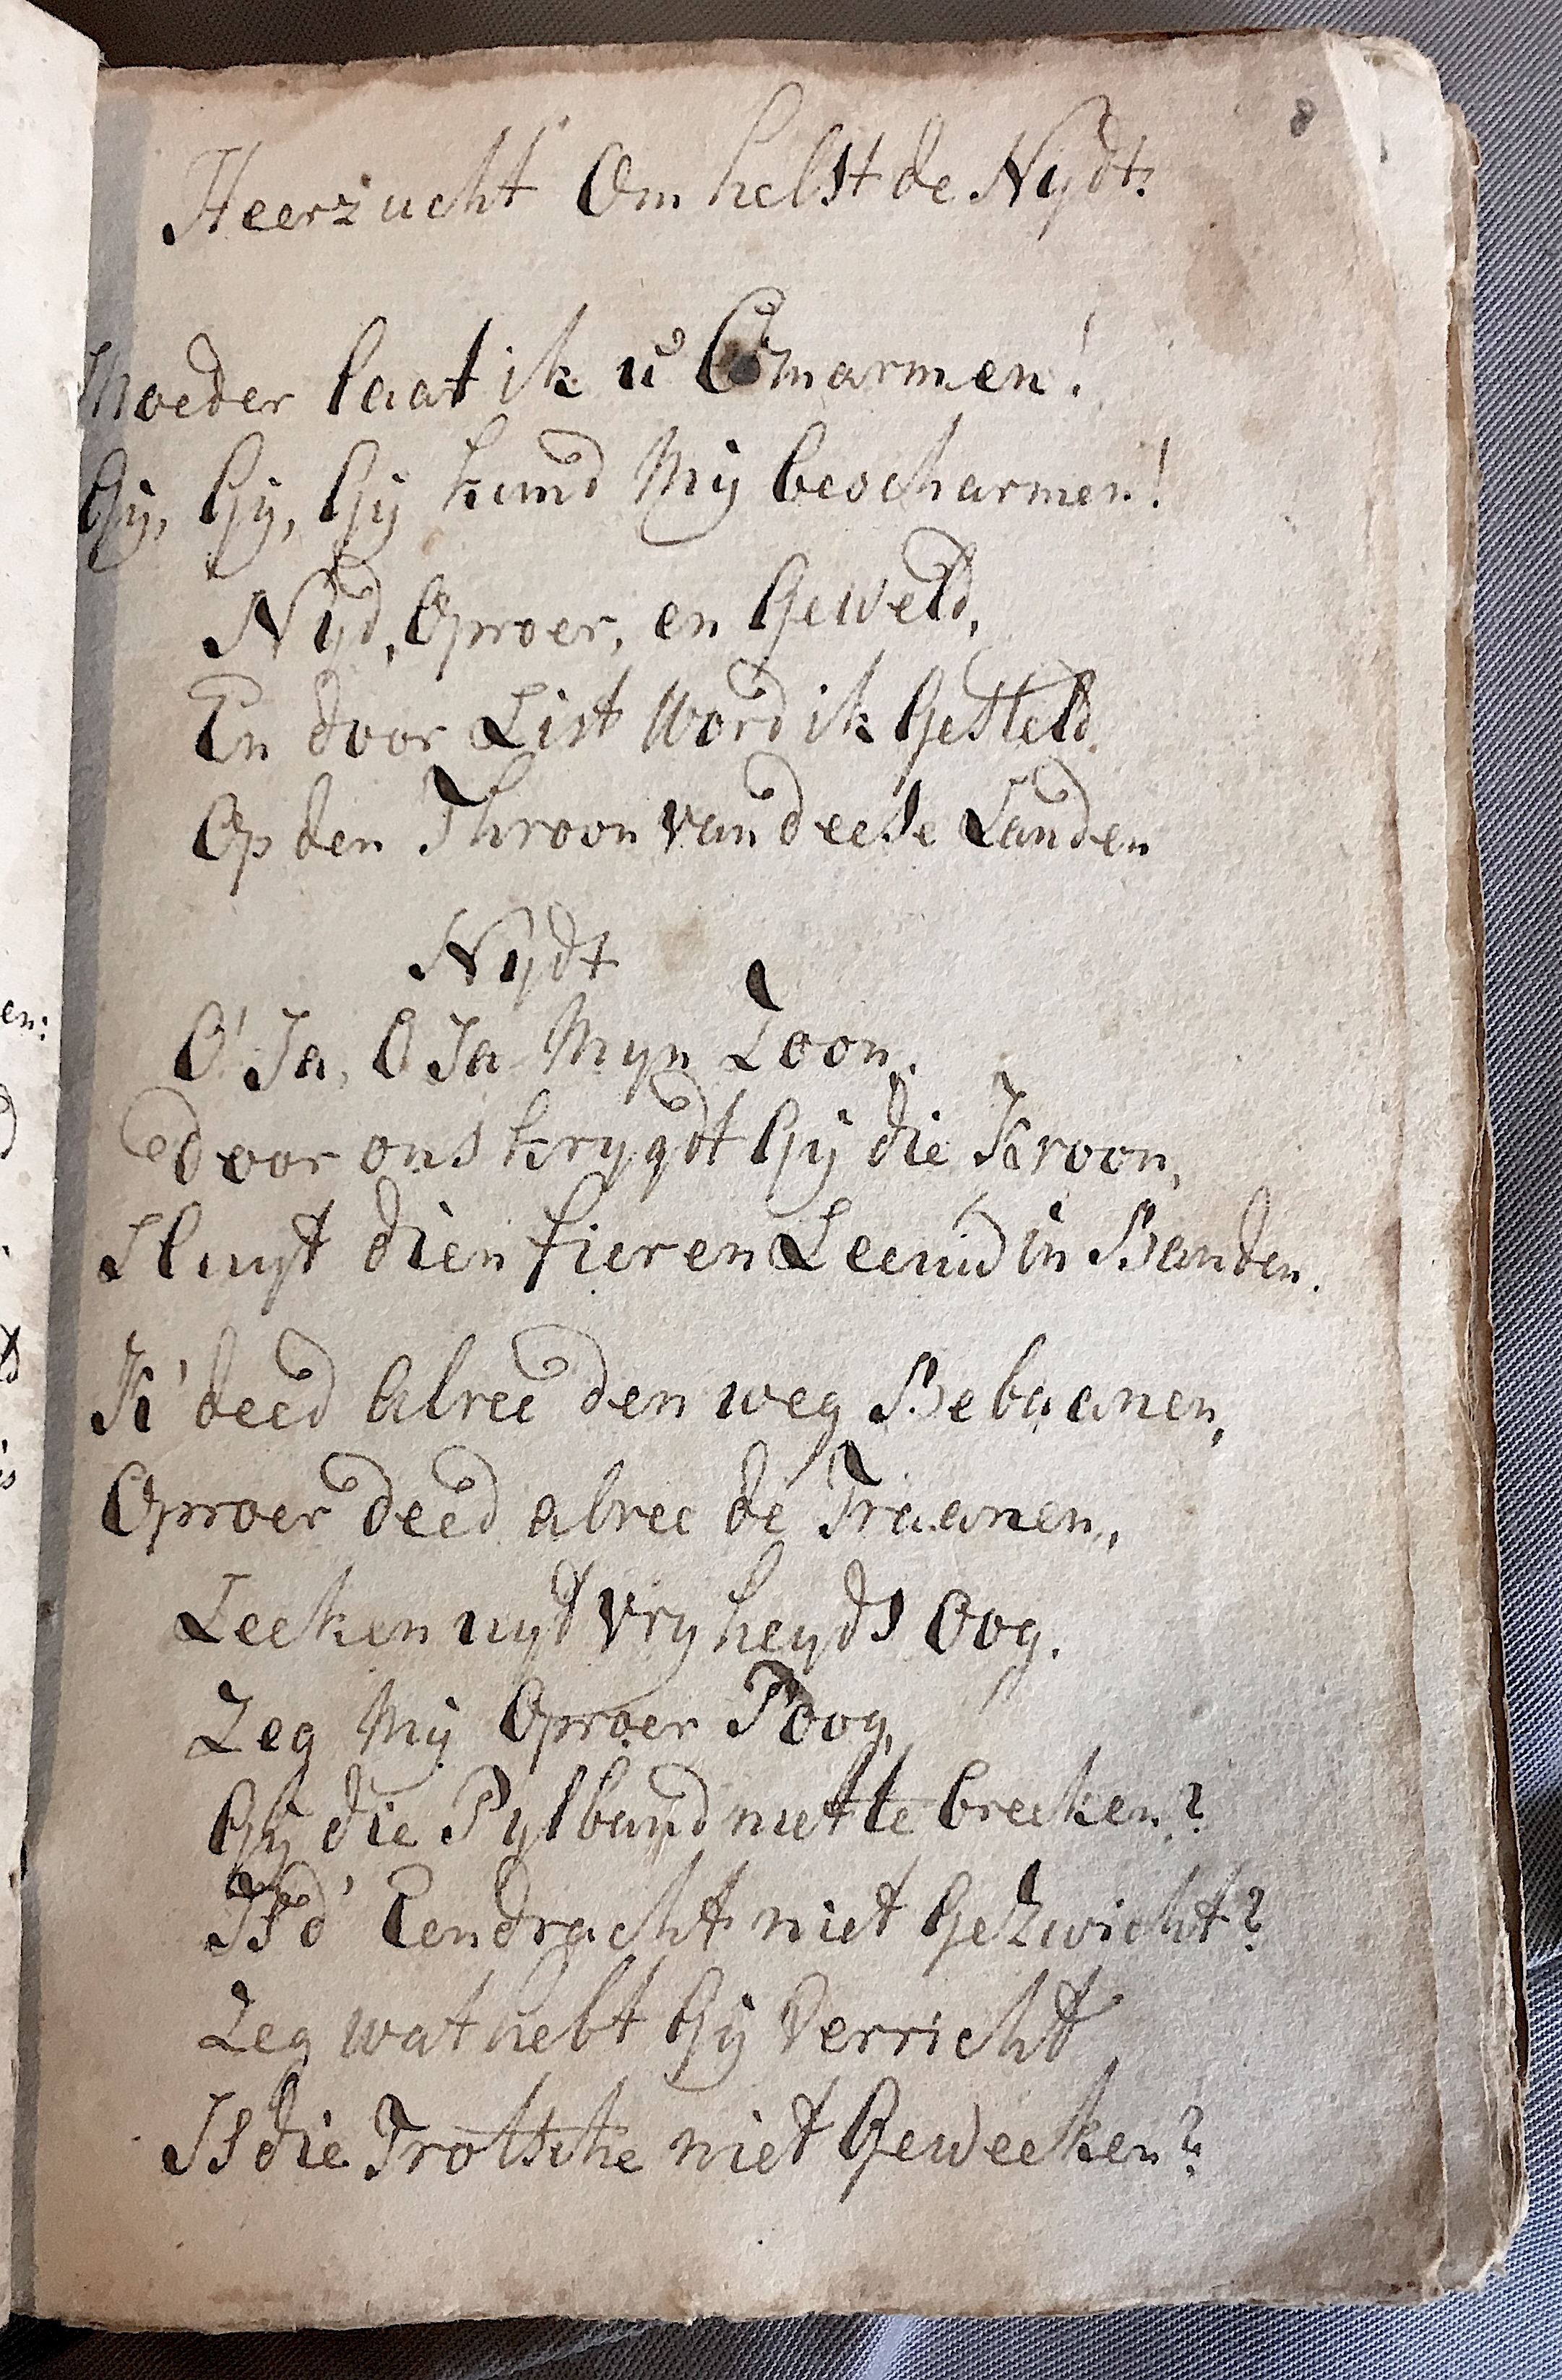 8
Heerzucht Omhelst de Nydt.
Moeder laat ik u Omarmen!
Gij, Gij, Gij kund Mij bescharmen!
Nijd, Oproer, en Geweld,
En door List Word ik Gesteld
Op den Throon van deese Landen
Nijdt
O! Ja, O Ja Myn Zoon,
door ons krygdt Gij die Kroon,
Sluyt dien fieren Leeuw in Banden.
K' deed Alree den weg Bebaanen,
Oproer deed alree de Traanen,
Leeken uyt Vryheyds Oog.
Zeg Mij Oproer Poog,
Gij die Pylband niet te breeken?
Is d' Eendracht niet Gezwicht?
Zeg wat hebt Gij Verricht
Is die Trotsche niet Geweeken?
en: